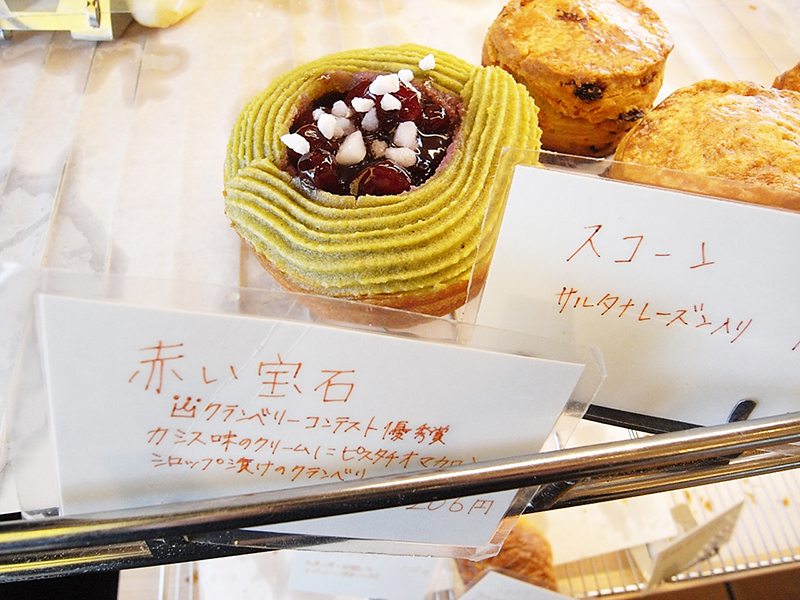 赤い宝石
クランベリーコンテスト優秀賞
カシス味のクリームにピスタチオマカロン
シロップ漬けのクランベリ
206円
スコーン
サルタナレーズン入り